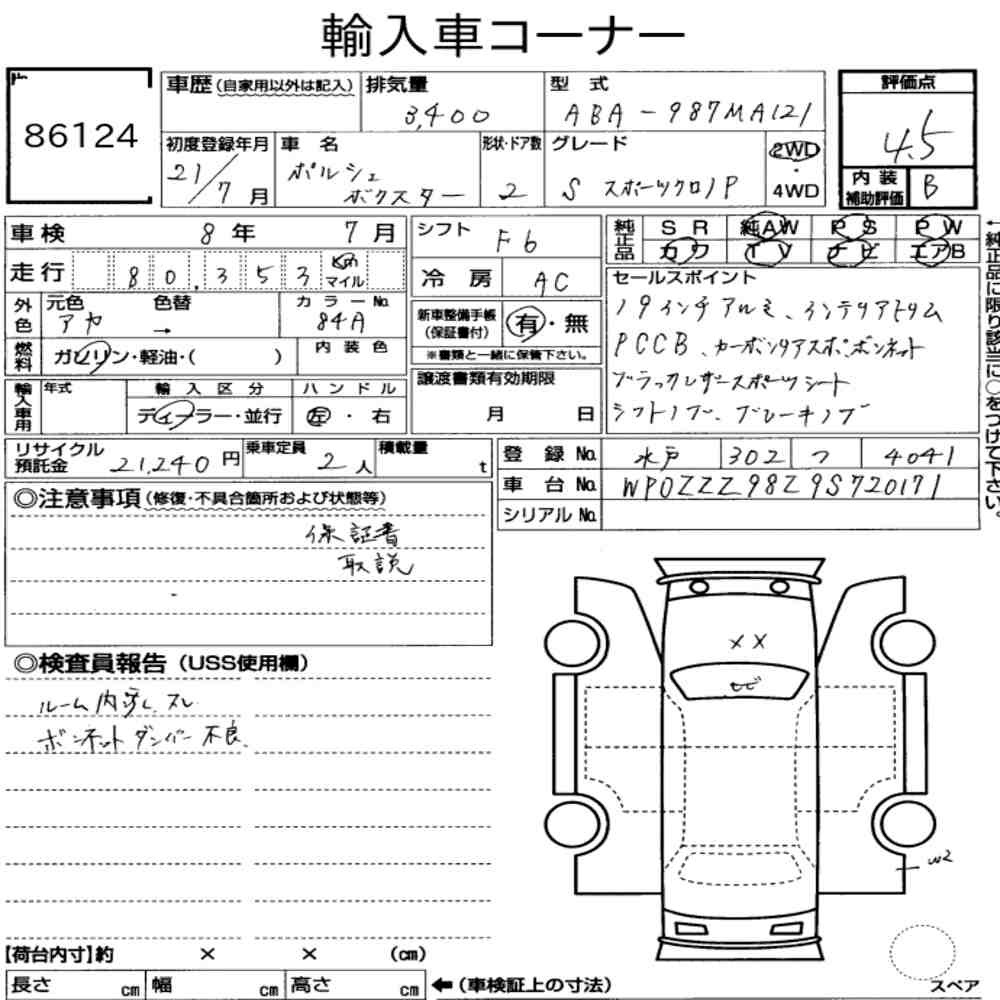 輸入車コーナー
86124
車歴(自家用以外は記入) 排気量 3,400 型式 ABA-987MA121 評価点 4.5
初度登録年月 21/7月 車名 ポルシェ ボクスター 形状・ドア数 2 グレード S スポーツクロノP 2WD・4WD 内装補助評価 B
車検 8年 7月 シフト F6 純正品 SR 純AW PS PW
カワ TV ナビ エアB
走行 80,353 km マイル 冷房 AC セールスポイント
外色 元色 色替 → カラーNo. 84A 新車整備手帳(保証書付) 有・無 19インチアルミ、インテリアトリム
※書類と一緒に保管下さい。 PCCB、
燃料 ガソリン・軽油・( ) 内装色 譲渡書類有効期限 ブラックレザースポーツシート
輸入車用 年式 輸入区分 ディーラー・並行 ハンドル 左・右 月 日 シフトノブ、ブレーキノブ
←純正品に限り該当に○をつけて下さい。
リサイクル預託金 21,240円 乗車定員 2人 積載量 t 登録No. 水戸 302 つ 4041
車台No. WP0ZZZ98Z9S720171
シリアルNo.
◎注意事項(修復・不具合箇所および状態等)
保証書
取説
◎検査員報告(USS使用欄)
ルーム内 スレ
ボンネットダンパー不良
××
トビ
W2
【荷台内寸】約 × × (cm)
長さ cm 幅 cm 高さ cm ←(車検証上の寸法)
スペア